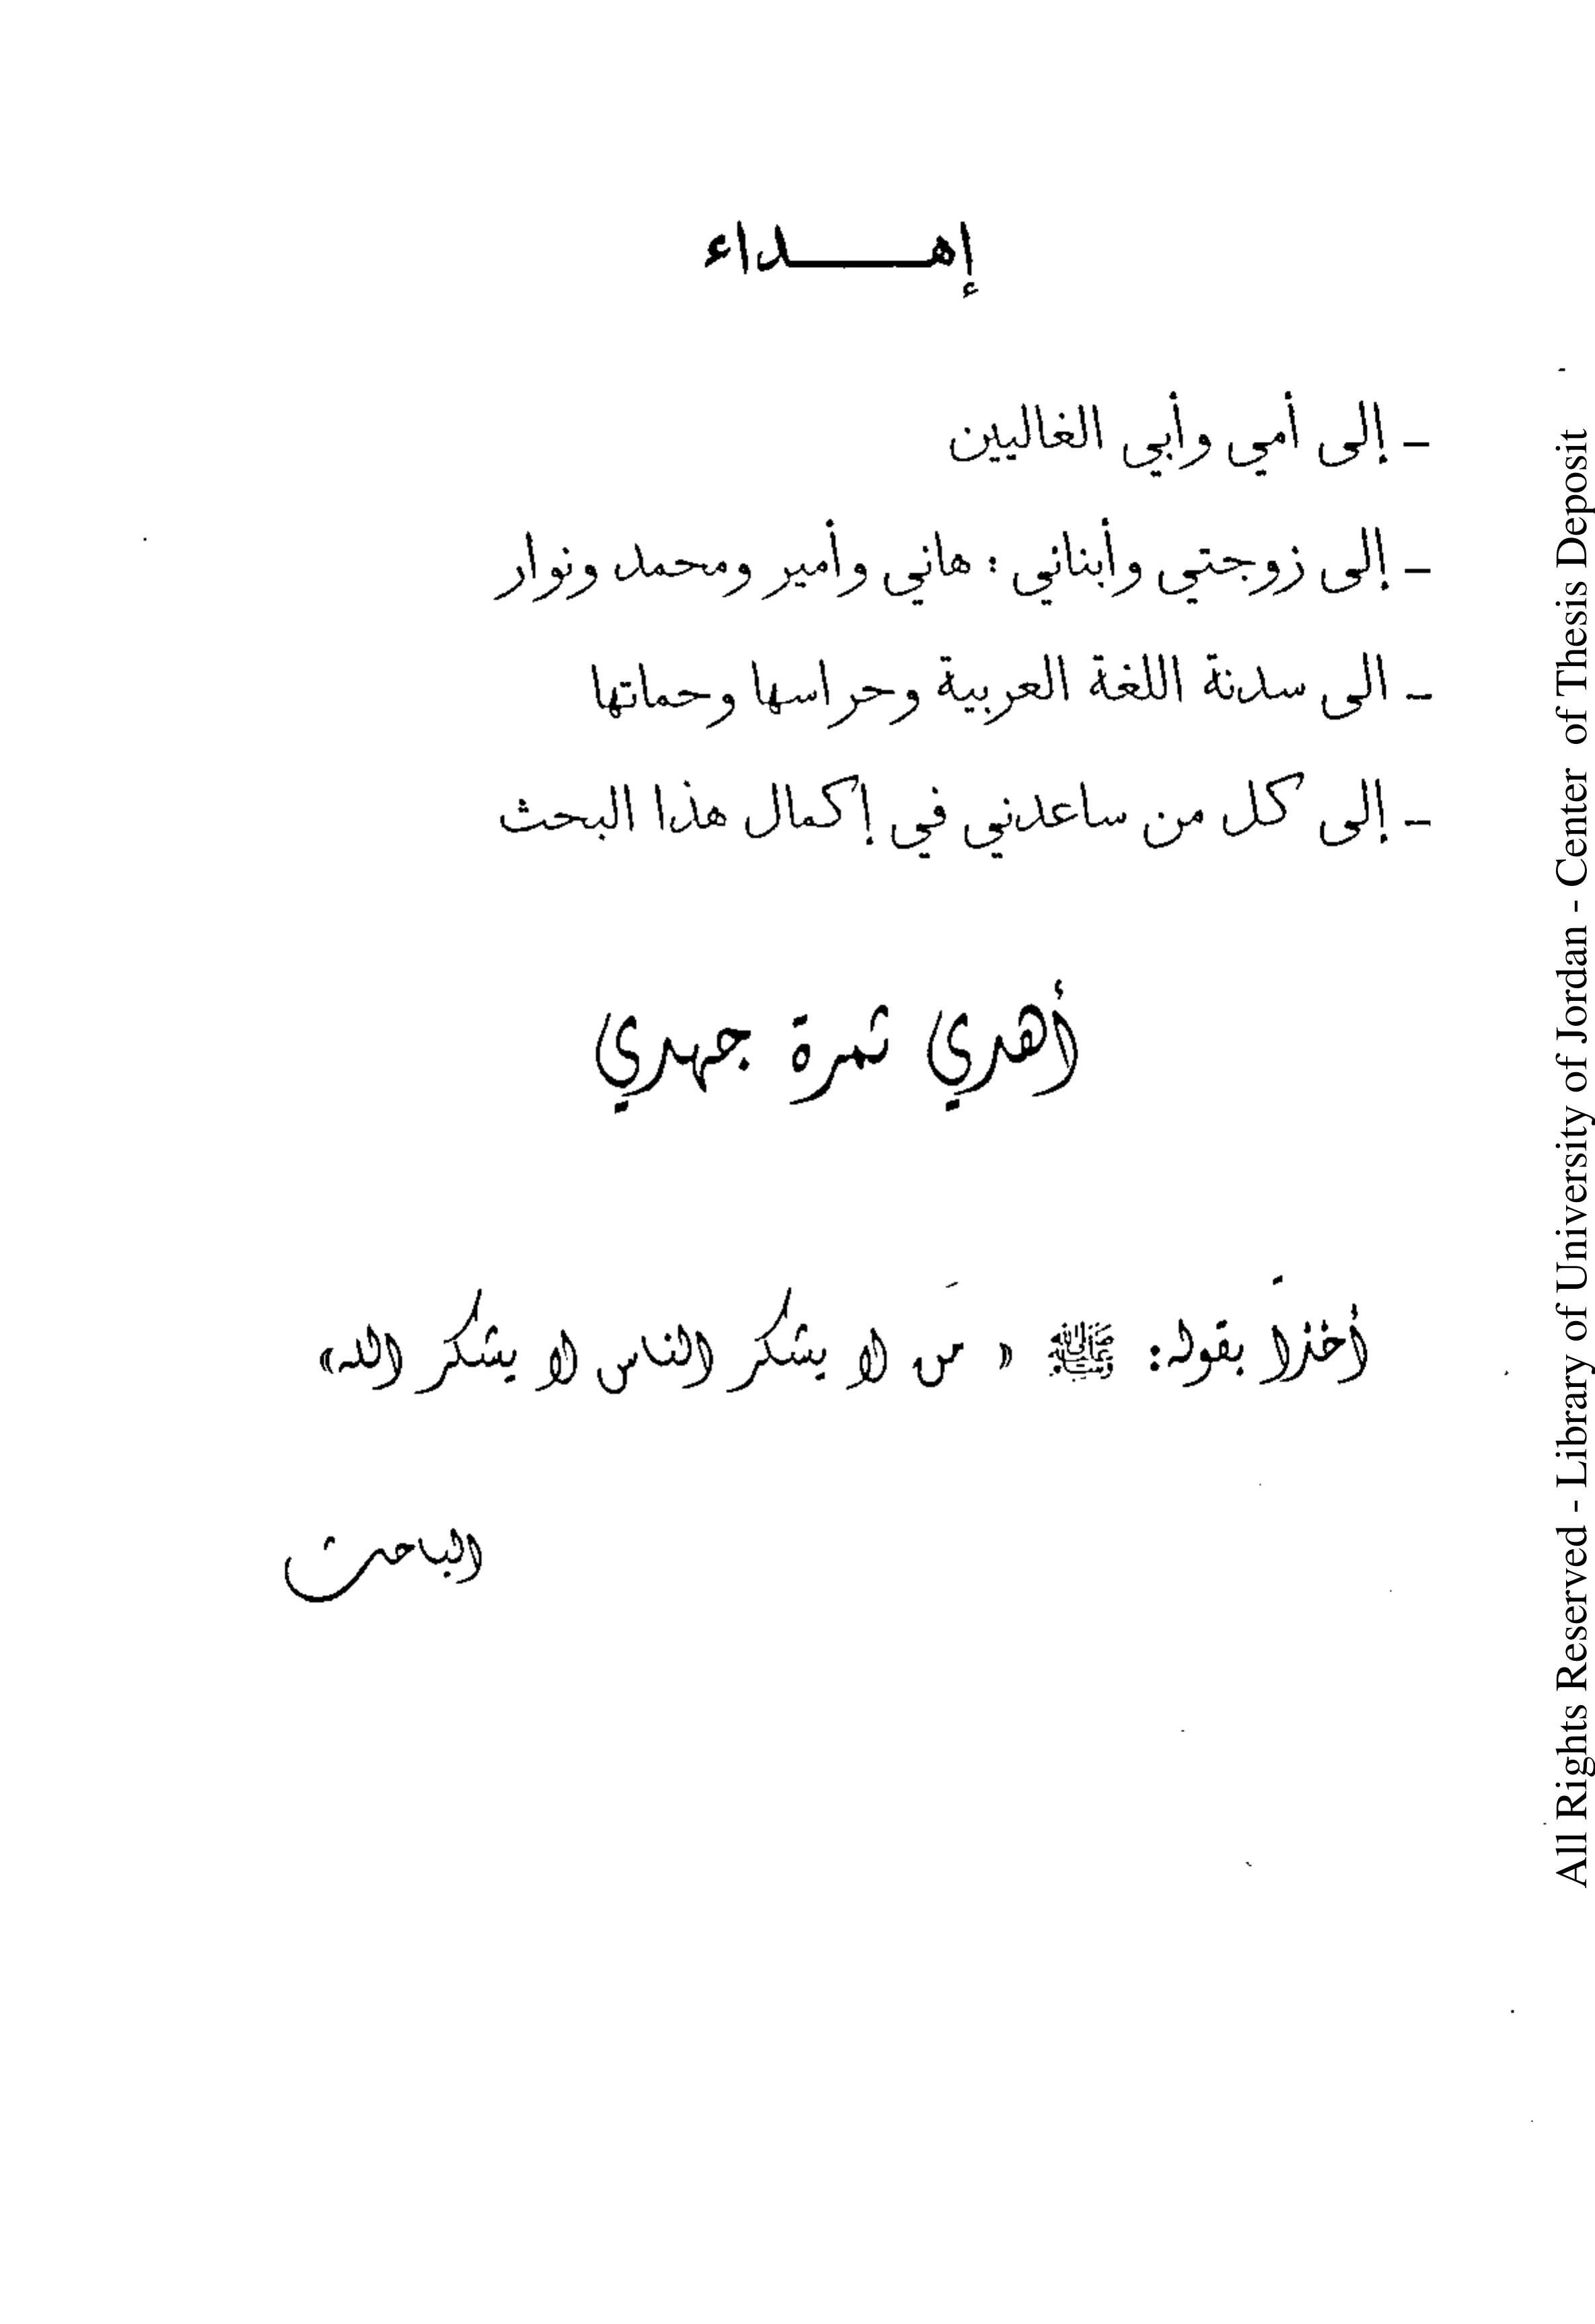 إهــــــداء
ـ إلى أمي وأبي الغاليين
ـ إلى زوجتي وأبنائي : هاني وأمير ومحمد ونوار
ـ الى سدنة اللغة العربية وحراسها وحماتها
ـ إلى كل من ساعدني في إكمال هذا البحث
أهدي ثمرة جهدي
أخذاً بقوله: ﷺ « مَن لا يشكر الناس لا يشكر الله»
الباحث
All Rights Reserved - Library of University of Jordan - Center of Thesis Deposit